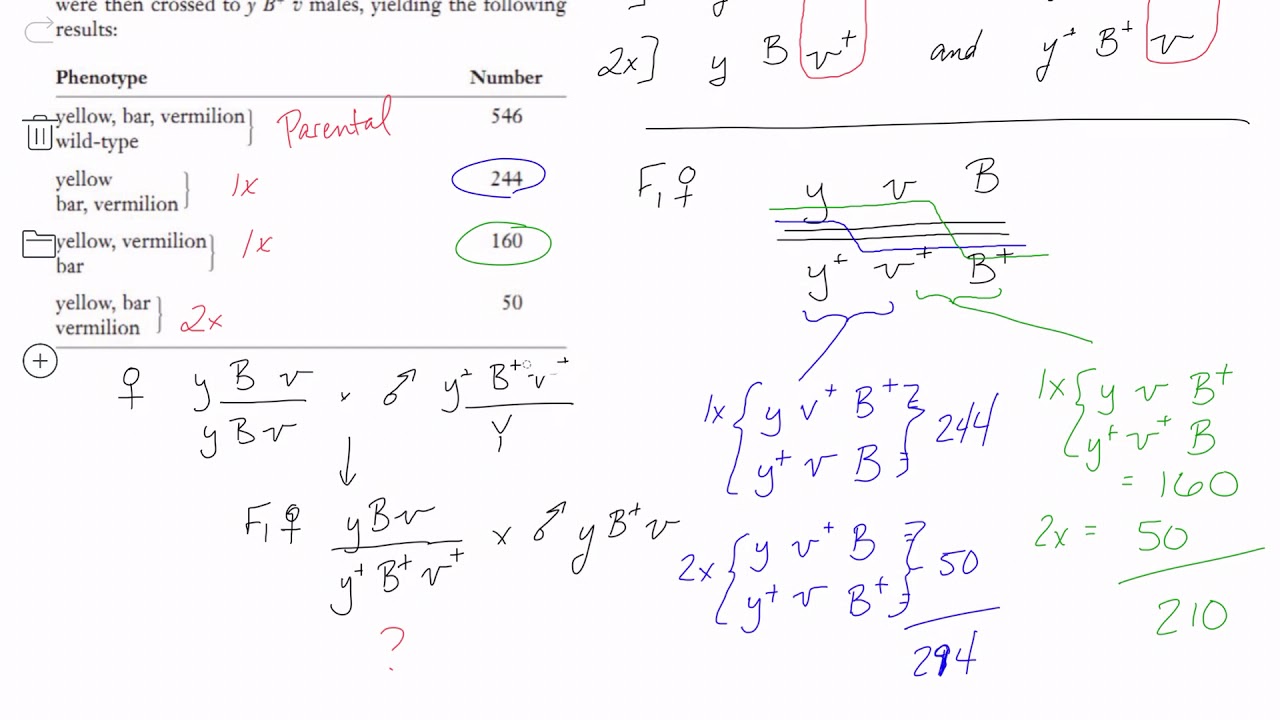 were then crossed to y B⁺ v males, yielding the following
results:
Phenotype Number
yellow, bar, vermilion
wild-type
Parental
546
yellow
bar, vermilion
1x
244
yellow, vermilion
bar
1x
160
yellow, bar
vermilion
2x
50
♀ y B v / y B v x ♂ y⁺ B⁺ v⁺ / Y
↓
F₁ ♀ y B v / y⁺ B⁺ v⁺ x ♂ y B⁺ v
?
2x] y B v⁺ and y⁺ B⁺ v
F₁ ♀
y v B
y⁺ v⁺ B⁺
1x { y v⁺ B⁺
y⁺ v B } 244
2x { y v⁺ B
y⁺ v B⁺ } 50
294
1x { y v B⁺
y⁺ v⁺ B
= 160
2x = 50
210